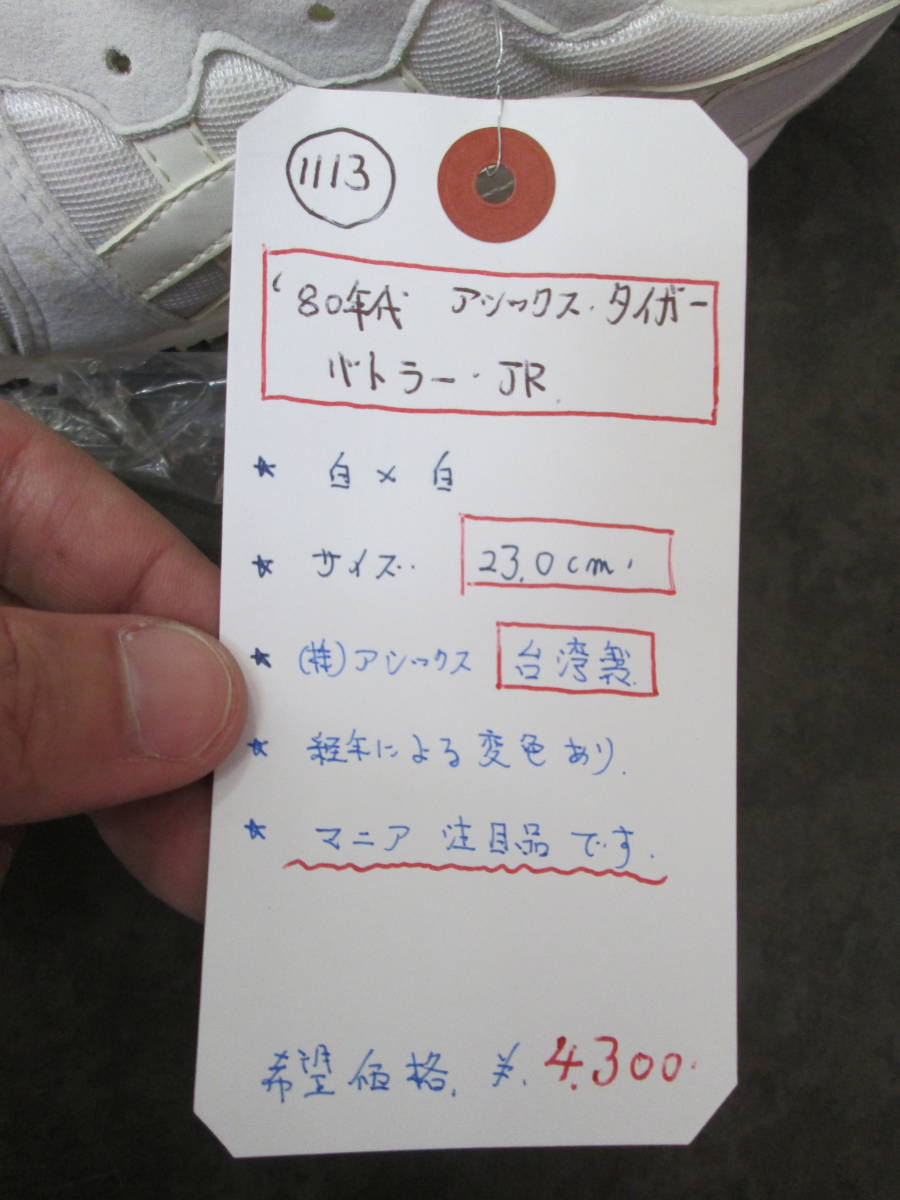 1113
'80年代 アシックス・タイガー
バトラー・JR.
★ 白×白
★ サイズ・ 23.0cm.
★ (株)アシックス 台湾製.
★ 経年による変色あり.
★ マニア 注目品です.
希望価格. ¥. 4.300.